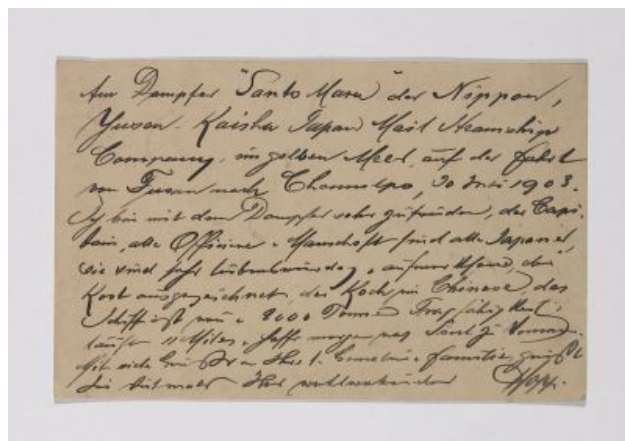 Am Dampfer "Santo Maru" der Nippon,
Yusen-Kaisha Japan Mail Steamship
Company, im gelben Meer, auf der Fahrt
von Fusan nach Chemulpo, 20 1903.
Ich bin mit dem Dampfer sehr zufrieden, der Capi-
tain, alle Officiere & Mannschaft sind alle Japaner,
sie sind sehr liebenswürdig & aufmerksam, die
Kost ausgezeichnet, der Koch ein Chinese, das
Schiff ist von 2000 Tonnen Tragfähigkeit,
läuft 11 Meilen, hoffe morgen nach Söul zu kommen.
Mit viele Grüße Familie
Ihr